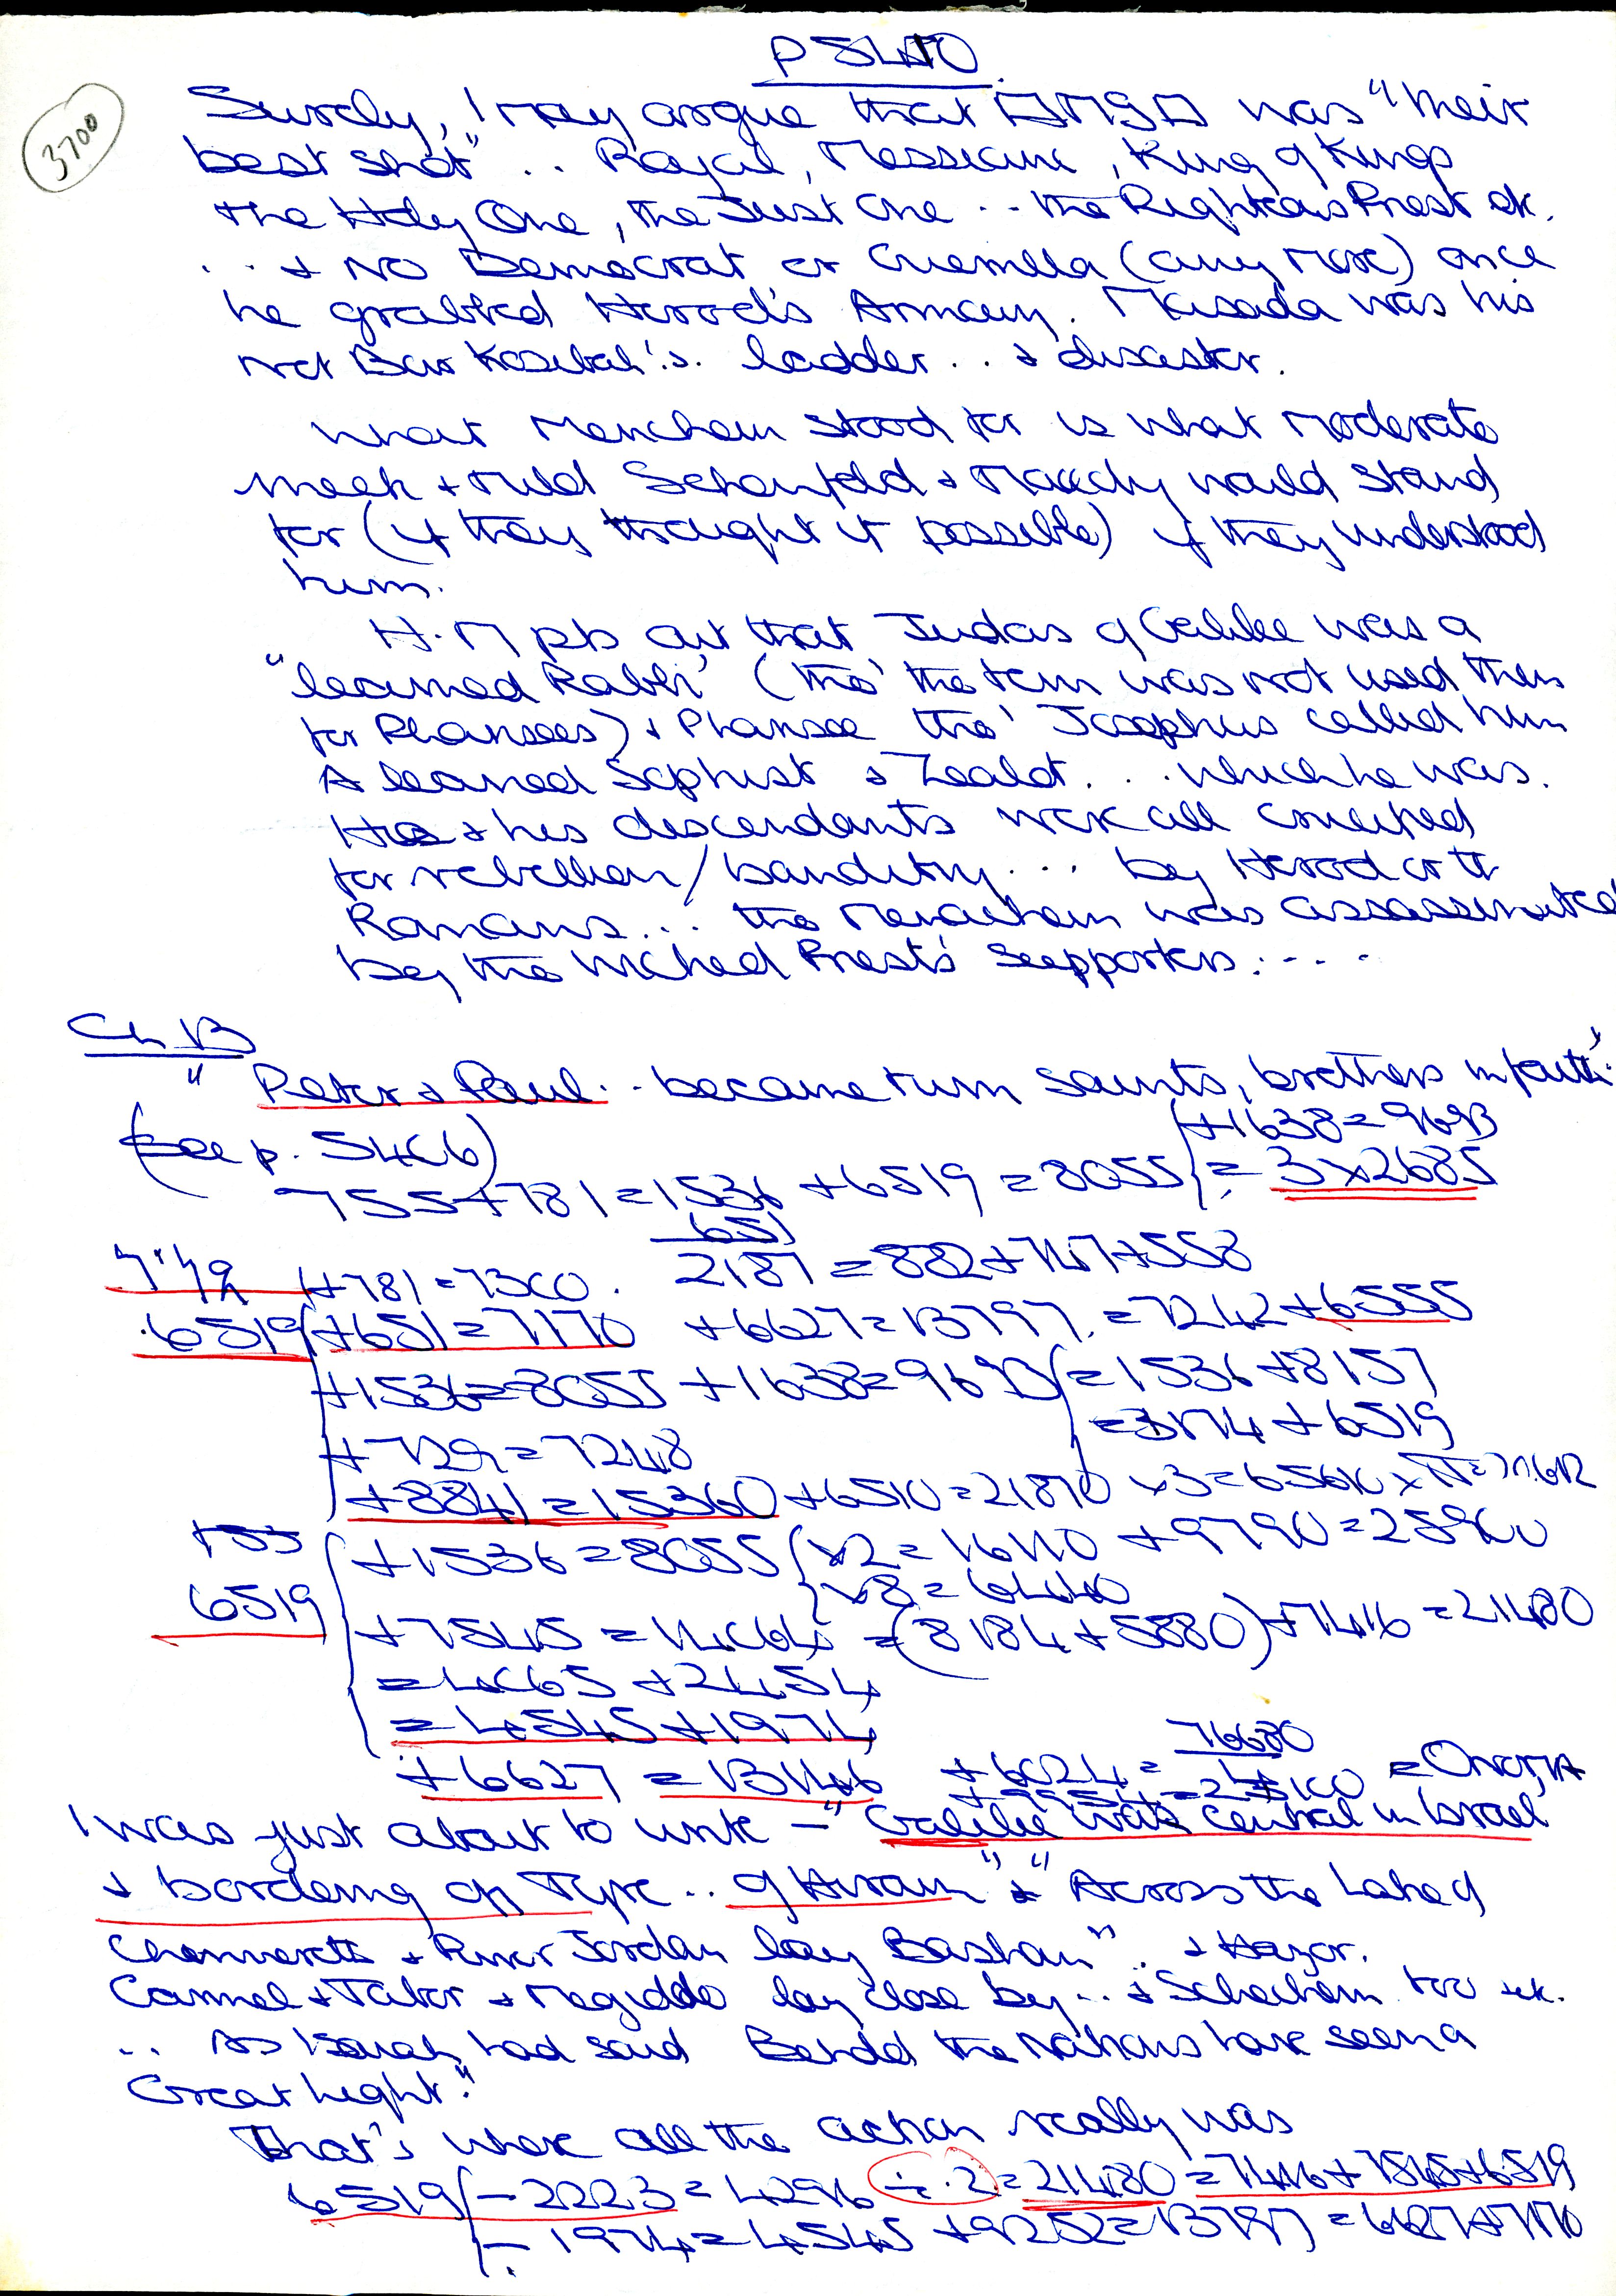 P 5410
3700
Surely, I may argue that was "their
best shot" .. Royal, Messianic, King of Kings
the Holy One, the Just One .. the Righteous Priest etc.
... + NO Democrat or Guerrilla (any more) once
he grabbed Herod's Armoury. Masada was his
not Bar Kosebah's. ladder .. + disaster.
What Menchem stood for is what moderate
meek + mild Schonfeld + Maccoby would stand
for (if they thought it possible) if they understood
him.
H.M pts out that Judas of Galilee was a
"learned Rabbi" (tho' the term was not used then
for Pharisees) + Pharisee tho' Josephus called him
A learned Sophist + Zealot... which he was.
He + his descendants were all crucified
for rebellion / banditry ... by Herod or the
Romans ... tho Menachem was assassinated
by the Wicked Priest's supporters....
Ch 13
"Peter + Paul .. became twin saints, brothers in faith"
(see p. 5406)
+1638 = 9693
755+781=1536 +6519 = 8055 = 3x2685
651
2187 = 882+747+558
+781=7300
6519 +651=7170 +6627=13797 =7242+6555
+1536=8055 +1638=9693 =1536+8157
=3174+6519
+729=7248
+8841=15360 +6510=21870 x3=65610
6519 +1536=8055 x2=16110 +9790=25900
x8=64440
+7545=14064 =(8184+5880)+7416=21480
=4065+2454
=4545+1974
+6627=13146 +6024=
I was just about to write - "Galilee was central in Israel
+ bordering on Tyre .. of Hiram" + "Across the Lake of
Chennereth + River Jordan lay Bashan" .. + Hazor.
Carmel + Tabor + Megiddo lay close by .. + Schechem too etc.
... As Isaiah had said Behold the Nations have seen a
Great Light."
That's where all the action really was
6519 -2223=4296 ÷.2=21480=7416+7545+6519
-1974=4545 +9252=13797=6627+7170